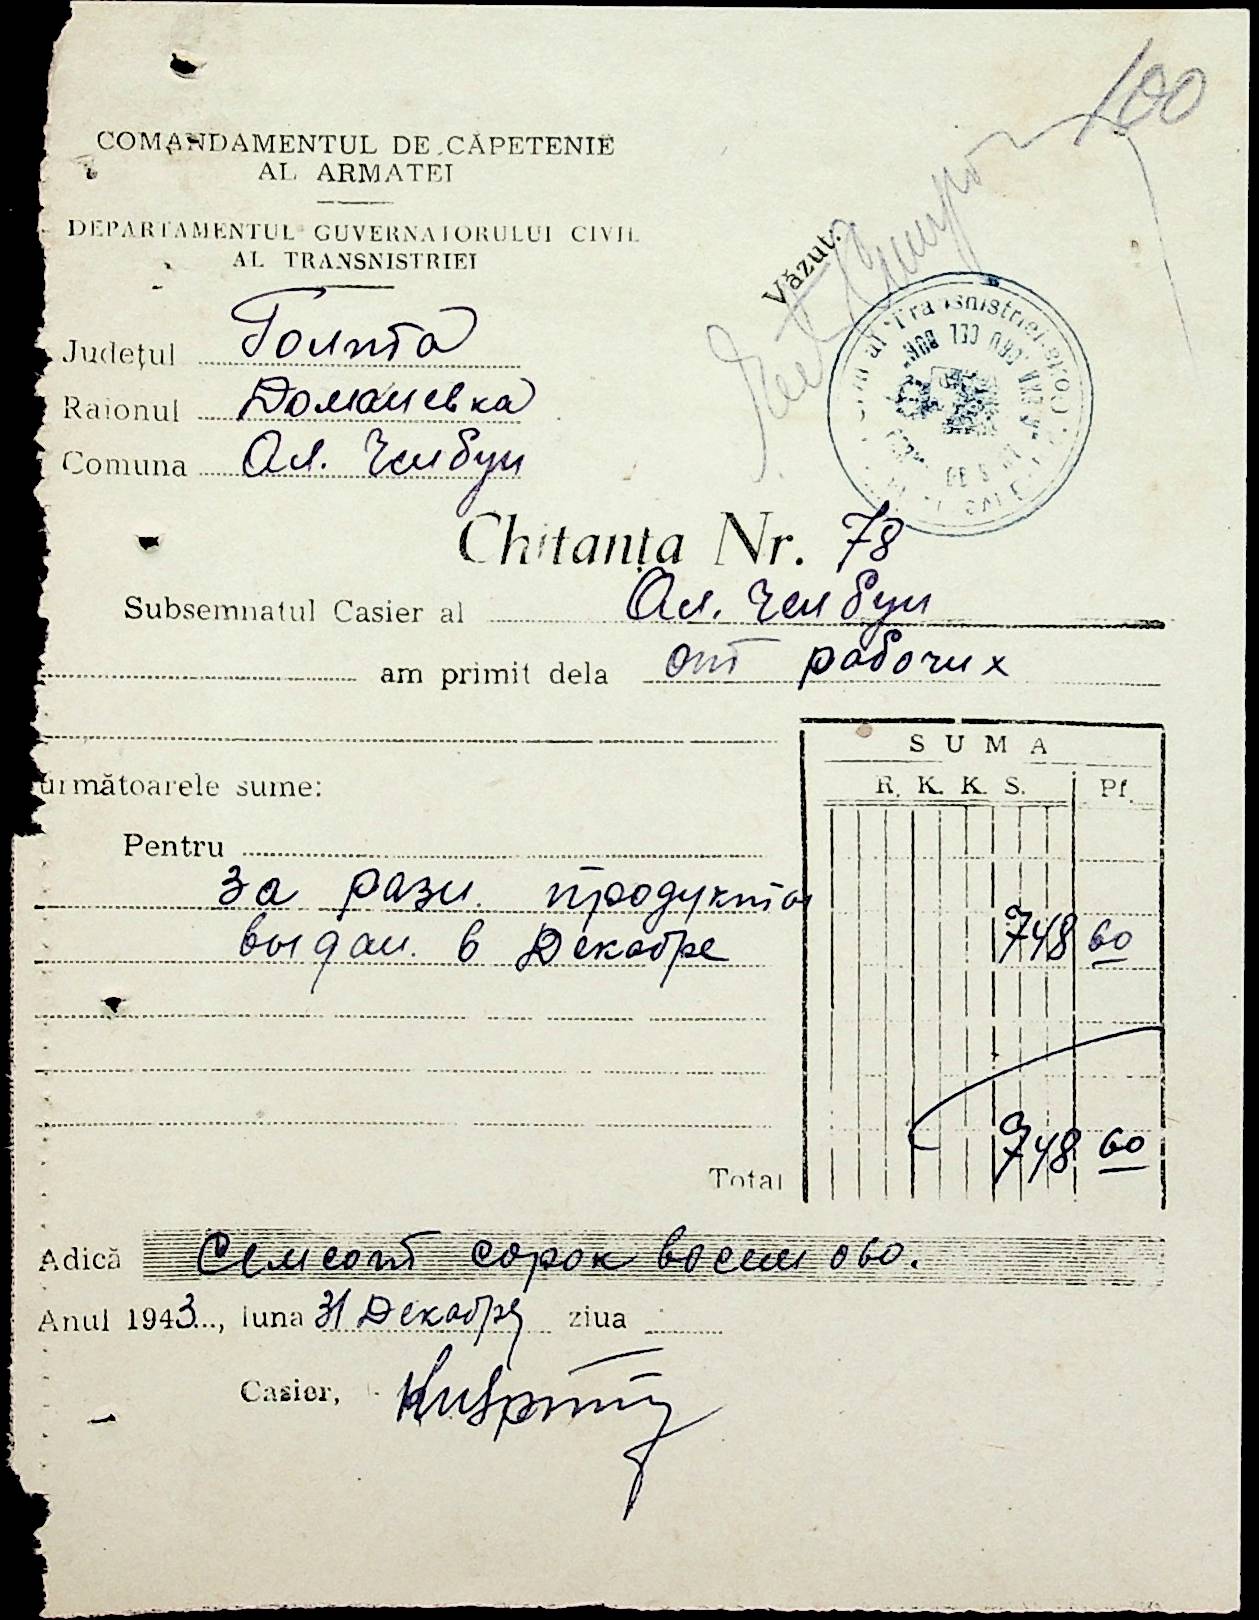 100
COMANDAMENTUL DE CĂPETENIE
AL ARMATEI
DEPARTAMENTUL GUVERNATORULUI CIVIL
AL TRANSNISTRIEI
Văzut.
Județul Голта
Raionul Доманевка
Comuna Ал. Челбун
Chitanța Nr. 78
Subsemnatul Casier al Ал. Челбун
am primit dela от рабочих
următoarele sume:
SUMA
R. K. K. S. Pf.
Pentru
за разн. продукты
выдан. в Декабре 748 60
Total 748 60
Adică Семсот сорок восем 060.
Anul 1943..., luna 31 Декабря ziua
Casier,